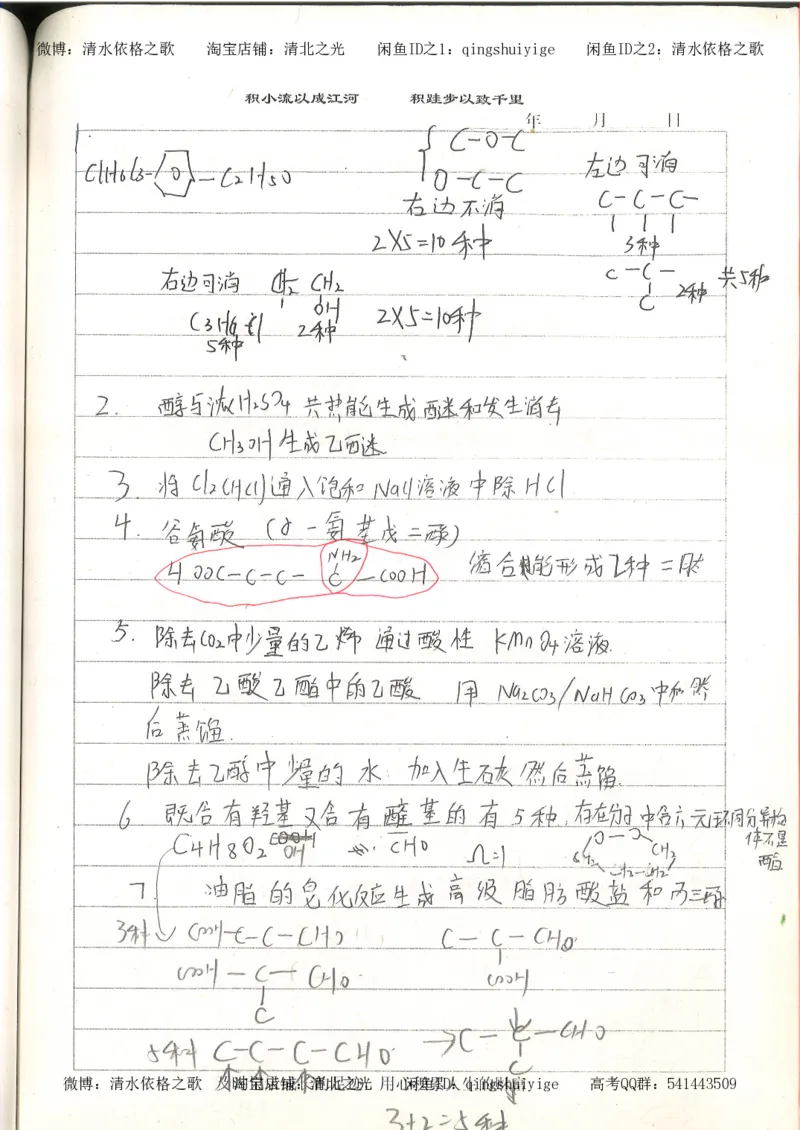 微博：清水依格之歌 淘宝店铺：清北之光 闲鱼ID之1：qingshuiyige 闲鱼ID之2：清水依格之歌
积小流以成江河 积跬步以致千里
年 月 日
C-O-C
O-C-C
右边不消
2×5=10种
左边可消
C-C-C-
3种
C-C-
C
2种 共5种
右边可消 CH2 CH2
OH
5种 2种 2×5=10种
2. 醇与浓H2SO4共热能生成醚和发生消去
CH3OH生成乙醚
3. 将Cl2(HCl)通入饱和NaCl溶液中除HCl
4. 谷氨酸 (α-氨基戊二酸)
NH2
HOOC-C-C-C-COOH 缩合能形成2种二肽
5. 除去CO2中少量的乙烯 通过酸性 KMnO4溶液.
除去乙酸乙酯中的乙酸 用 Na2CO3/NaHCO3中和然
后蒸馏.
除去乙醇中少量的水：加入生石灰然后蒸馏.
6 既含有羟基又含有醛基的有5种,存在分子中含六元环同分异构
体不是
酯
C4H8O2 OH CHO Ω=1
O-O
CH2
7. 油脂的皂化反应生成高级脂肪酸盐和丙三醇
3种 COOH-C-C-CHO C-C-CHO
COOH
COOH-C-CHO
C
5种 C-C-C-CHO → C-C-CHO
C
微博：清水依格之歌 淘宝店铺：清北之光 闲鱼ID：qingshuiyige 高考QQ群：541443509
3+2=5种